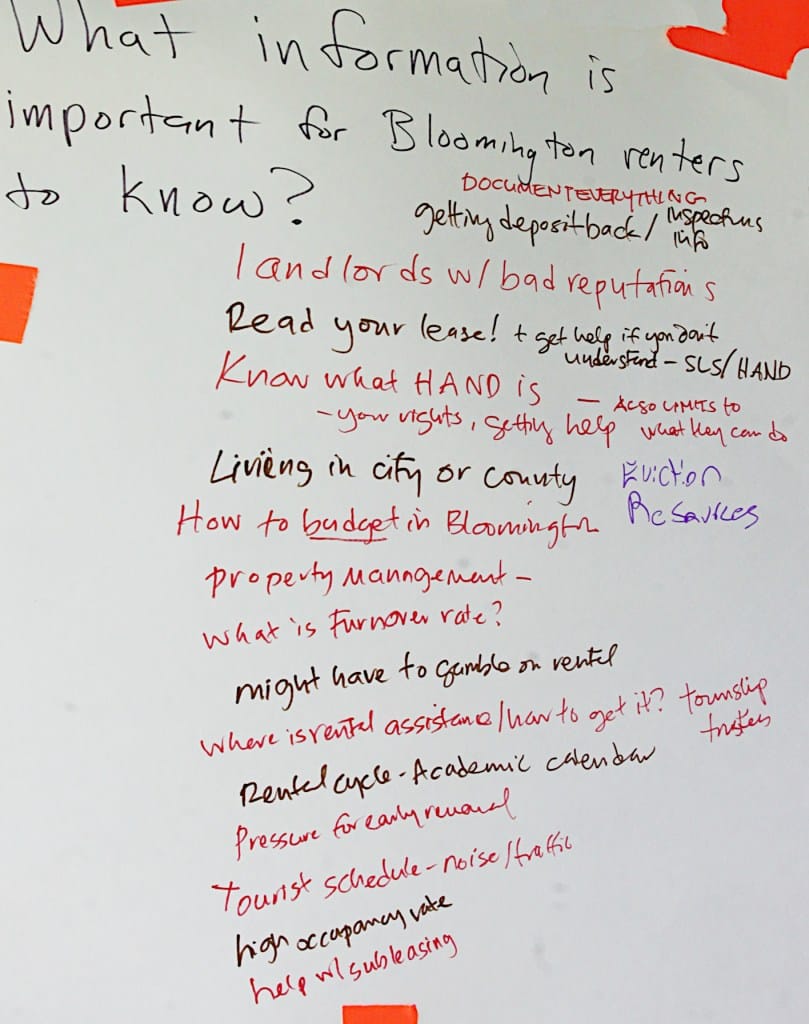 What information is
important for Bloomington renters
to know?
DOCUMENT EVERYTHING
getting deposit back / inspections
info
landlords w/ bad reputations
Read your lease! + get help if you don't
understand - SLS/HAND
Know what HAND is
- ALSO LIMITS to
what they can do
- your rights, getting help
Living in city or county
Eviction
Resources
How to budget in Bloomington
property management -
what is turnover rate?
might have to gamble on rental
where is rental assistance/how to get it? township
trustees
Rental cycle - Academic calendar
Pressure for early renewal
Tourist schedule - noise/traffic
high occupancy rate
help w/ subleasing